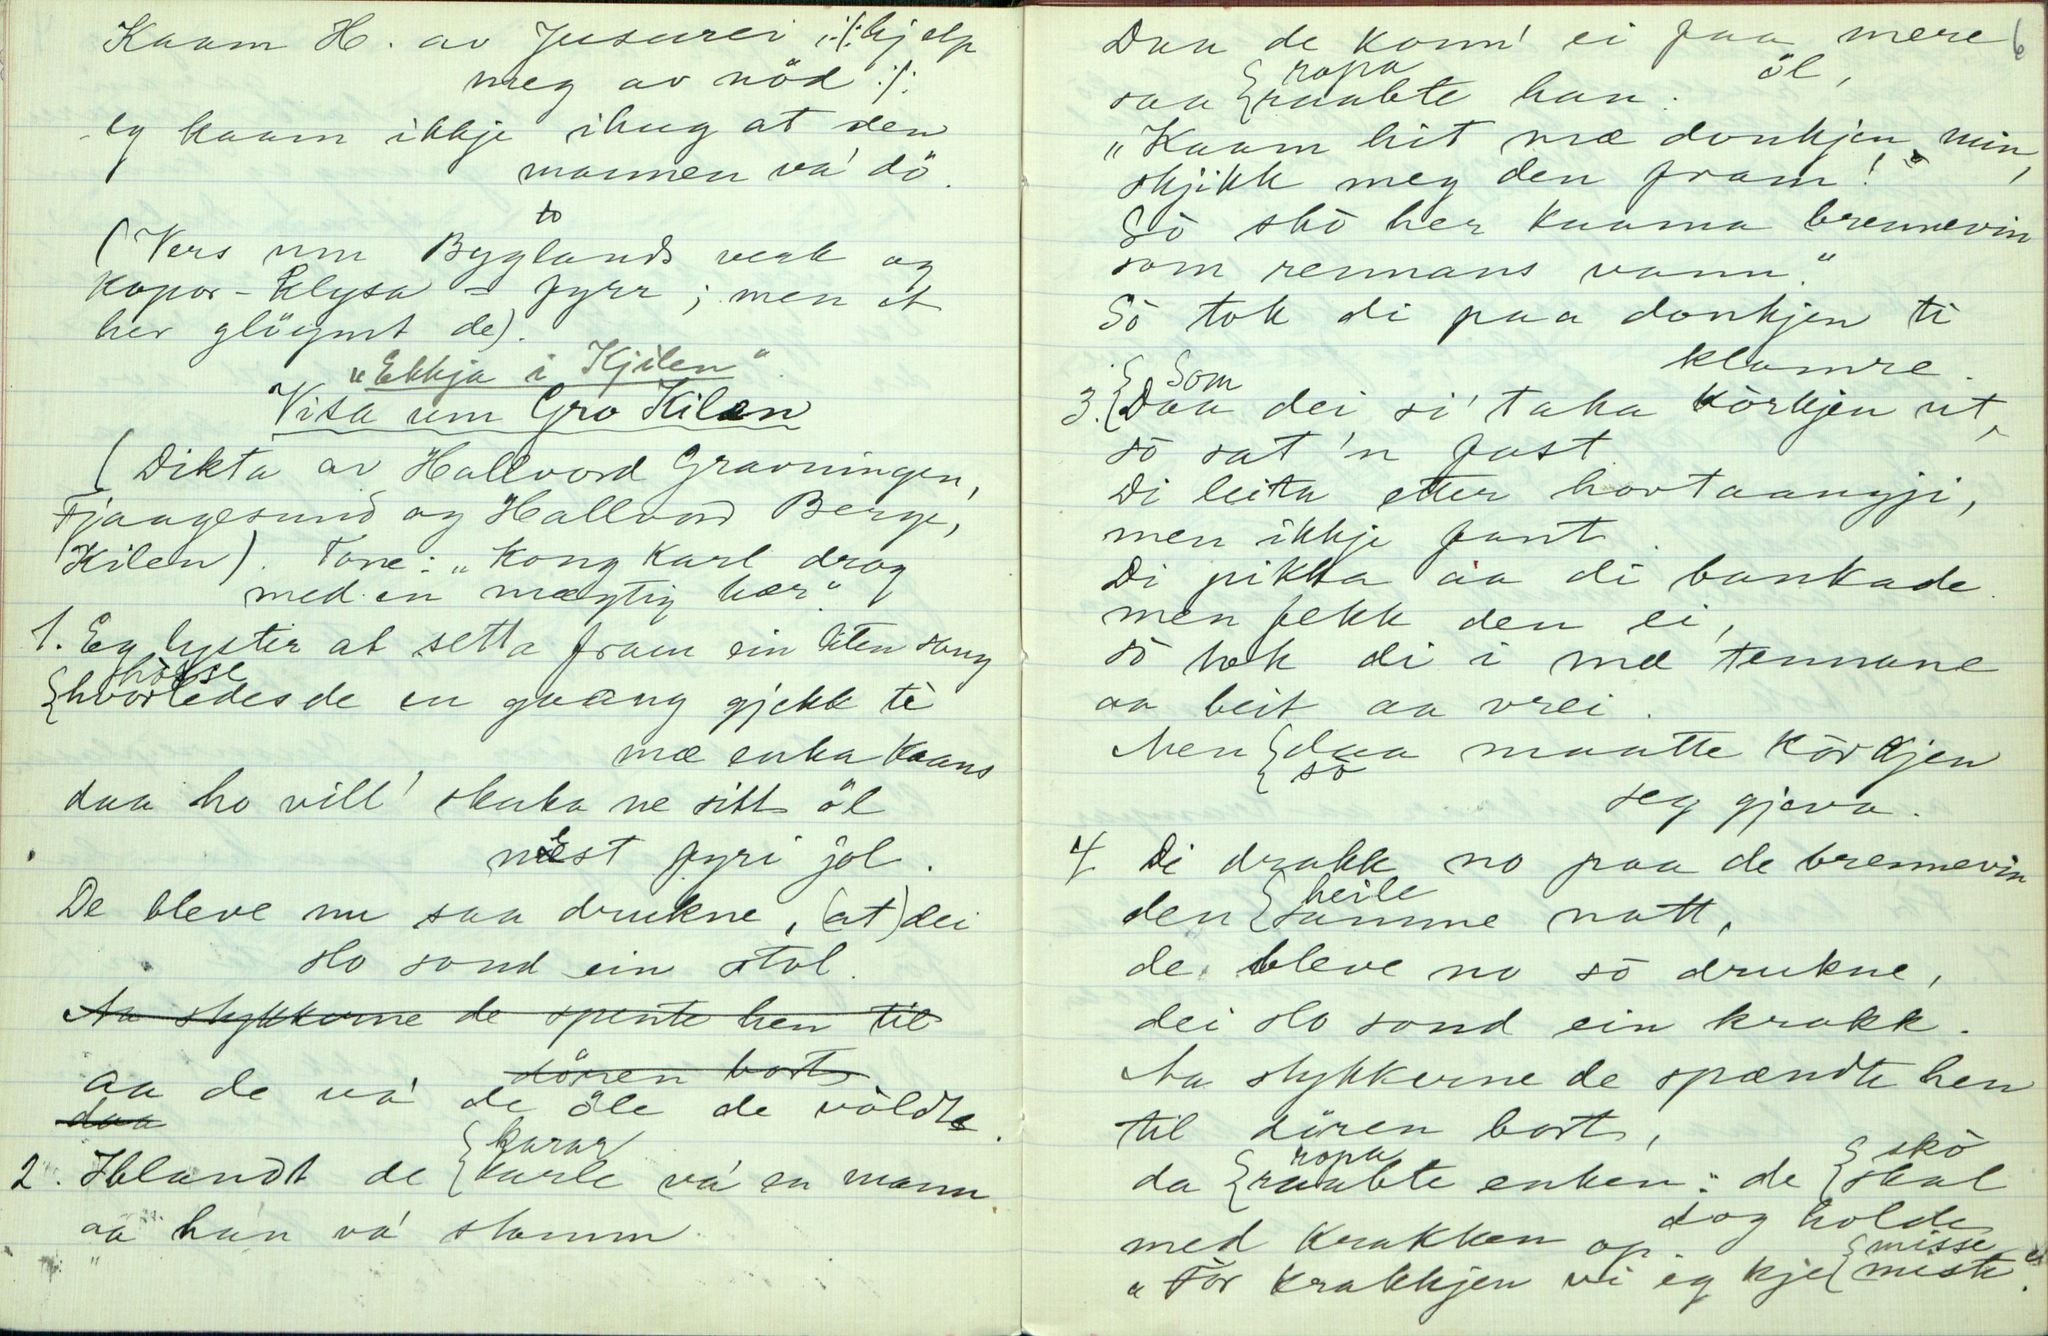 Kaam H. av Jusurei :/: hjelp
meg av nöd :/:
eg kaam ikkje ihug at den
mannen va' dö.
(Vers um Byglands veak og
Kopar-Klysa = fyrr; men et
her glöymt de).
"Ekkja i Kjilen"
Visa um Gro Kilen
(Dikta av Hallvord Gravningen,
Fjaagesund og Hallvord Berge,
Kilen). Tone: "Kong Karl drog
med en mægtig hær."
1. Eg lyster at setta fram ein liten song
hösse
{hvorledes de en gaang gjekk te
mæ enka kaans
daa ho vill' skaka ne sitt öl
næst fyri jol.
De bleve nu saa drukne, (at) dei
slo sond ein stol.
Aa stykkerne de spente hen til
dören bort
aa de va' de öle de völdte.
daa
2. Iblandt de {karle va' en mann
karar
aa han va' stamm
6
Daa de komm' ei faa mere
öl,
ropa
saa {raabte han:
"Kaam hit mæ donkjen min,
skjikk meg den fram!
Sò skò her kaama brennevin
som rennans vann."
Sò tok di paa donkjen te
klamre.
Som
3. {Daa dei si' taka körkjen ut,
sò sat 'n fast
Di leita etter hovtaangji,
men ikkje fant.
Di pikka aa di bankade
men fekk den ei,
sò tok di i mæ tennane
aa beit aa vrei.
Men {daa maatte körkjen
sò
seg gjeva.
4 Di drakk no paa de brennevin
heile
den {samme natt,
de bleve no sò drukne,
dei slo sond ein krakk.
Aa stykkerne de spændte hen
til dören bort,
ropa
skò
da {raabte enken: "de {skal
dog holde
med krakken op.
misse
"För krakkjen vi eg kje {miste."